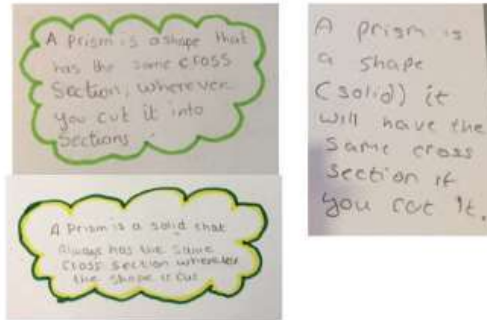 A Prism is a shape that
has the same cross
Section, wherever
you cut it into
Sections
A Prism is a solid that
always has the same
cross section wherever
the shape is cut
A prism is
a shape
(solid) it
will have the
same cross
section if
you cut it.